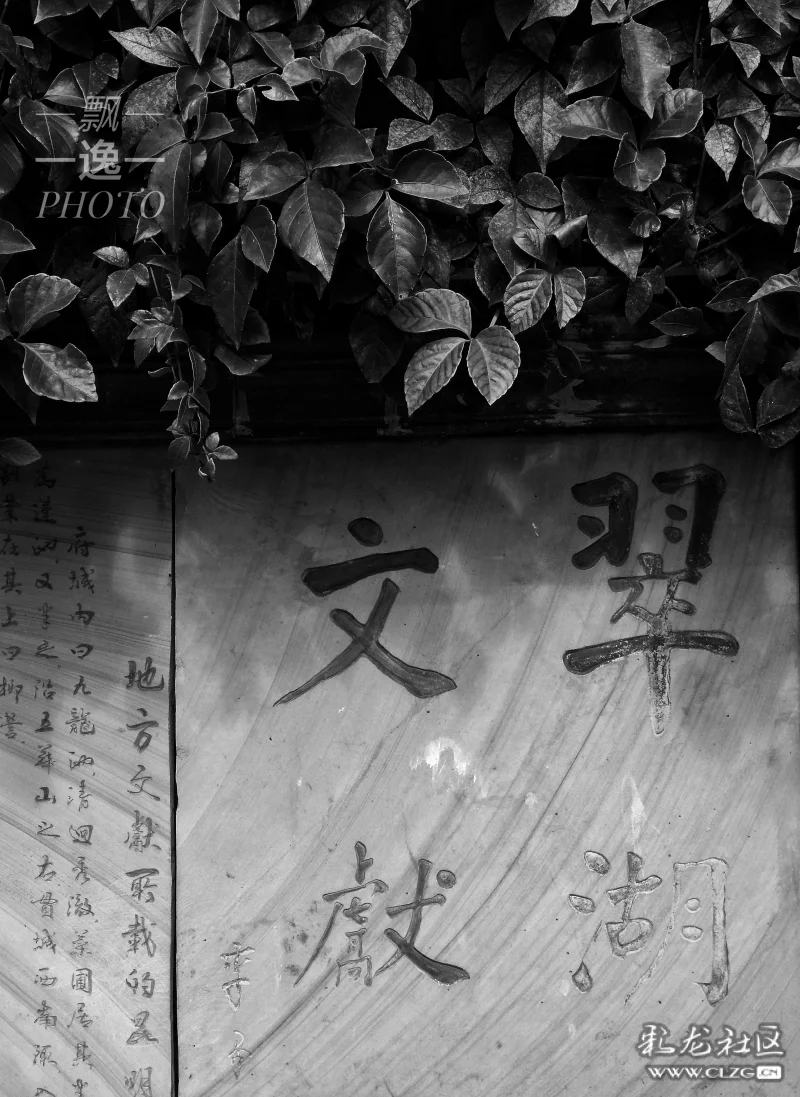 飘
逸
PHOTO
翠湖
文獻
李
地方文獻所載的昆明
府城内曰九龍池清迴秀澈菜圃居其半
為蓮池又半之沿五華山之右貫城西南陬入
業在其上曰柳營
彩龙社区
www.CLZG.CN